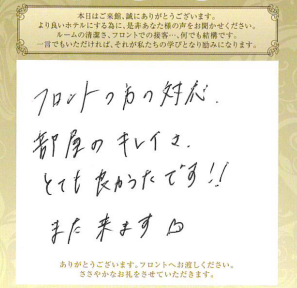 本日はご来館、誠にありがとうございます。
より良いホテルにする為に、是非あなた様の声をお聞かせください。
ルームの清潔さ、フロントでの接客…、何でも結構です。
一言でもいただければ、それが私たちの学びとなり励みになります。
フロントの方の対応、
部屋のキレイさ、
とても良かったです!!
また来ます
ありがとうございます。フロントへお渡しください。
ささやかなお礼をさせていただきます。